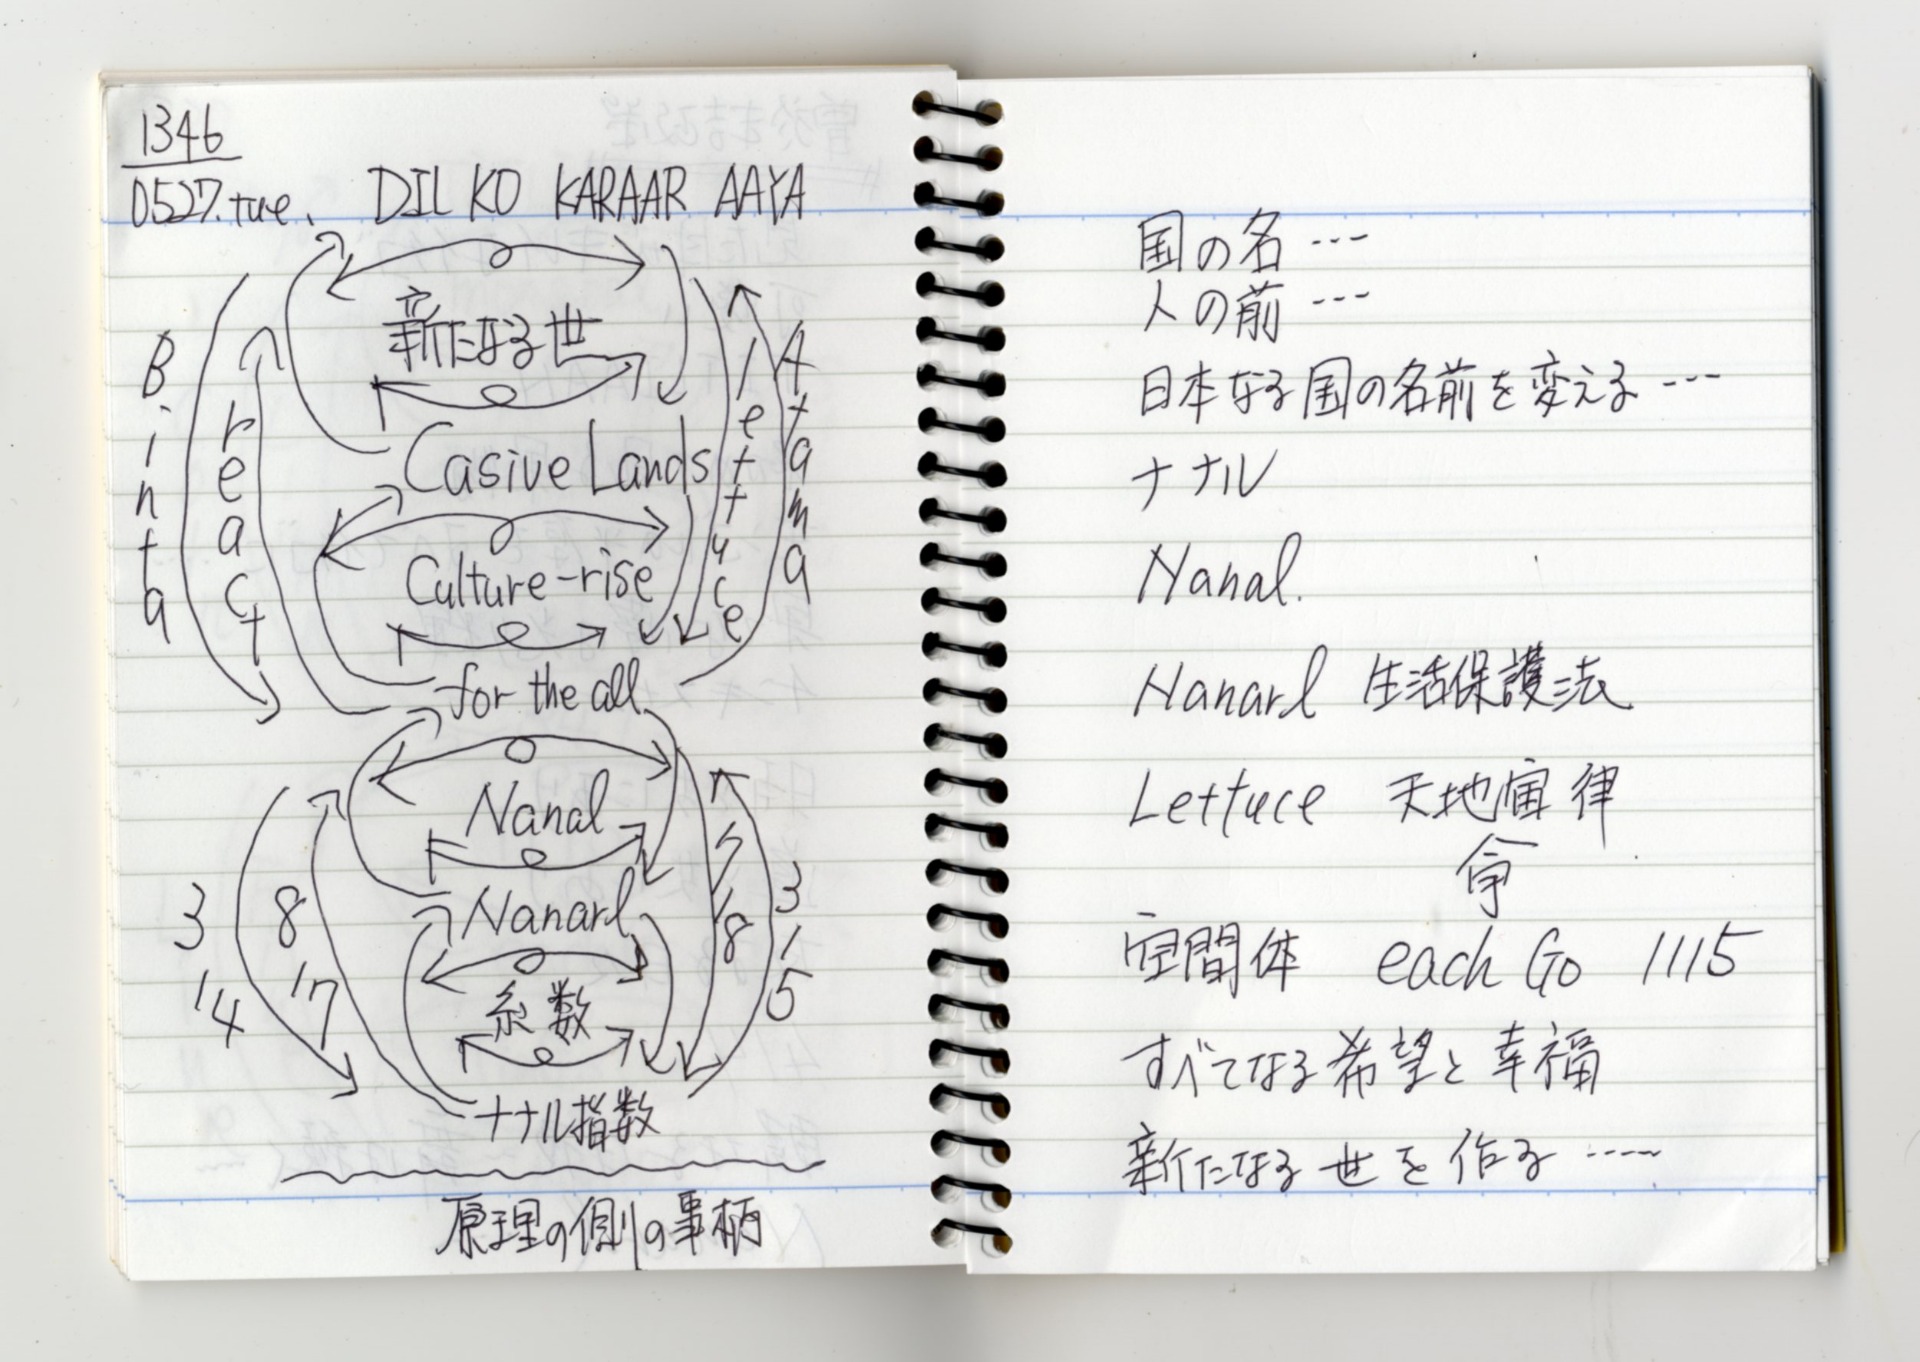 1346
0527.tue. DIL KO KARAAR AAYA
新たなる世
Binta
react
lettuce
Atama
Casive Lands
Culture-rise
for the all
Nanal
Nanarl
3
14
8
17
8
3
15
糸数
ナナル指数
原理の側の事柄
国の名…
人の前…
日本なる国の名前を変える…
ナナル
Nanal.
Nanarl 生活保護法
Lettuce 天地宙律
命
空間体 each Go 1115
すべてなる希望と幸福
新たなる世を作る……